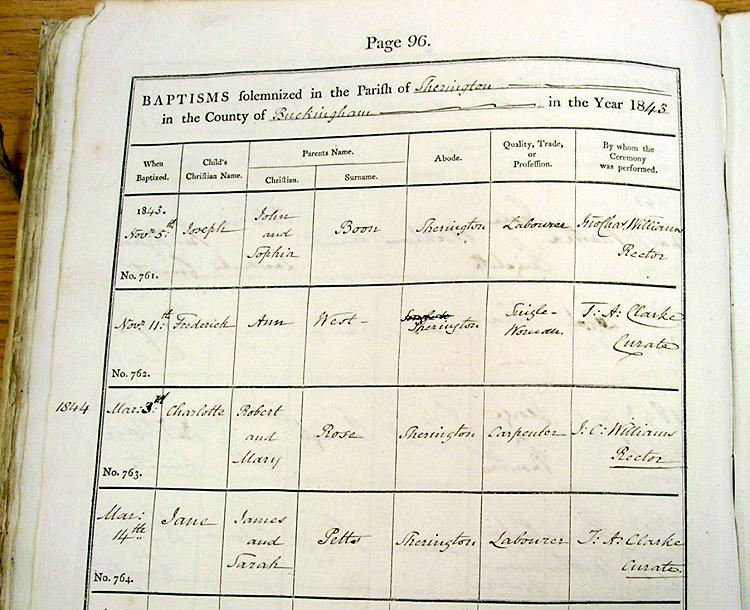 Page 96.
BAPTISMS solemnized in the Parish of Sherington
in the County of Buckingham in the Year 1843
When Baptized. Child's Christian Name. Parents Name. Christian. Surname. Abode. Quality, Trade, or Profession. By whom the Ceremony was performed.
1843.
Novr. 5:th Joseph John and Sophia Boon Sherington Labourer Jno Chas Williams Rector
No. 761.
Novr. 11:th Frederick Ann West Sherington Single-Woman. T: A: Clarke Curate
No. 762.
1844 Mar: 3:rd Charlotte Robert and Mary Rose Sherington Carpenter J: C: Williams Rector
No. 763.
Mar: 14th Jane James and Sarah Petts Sherington Labourer T: A: Clarke Curate.
No. 764.